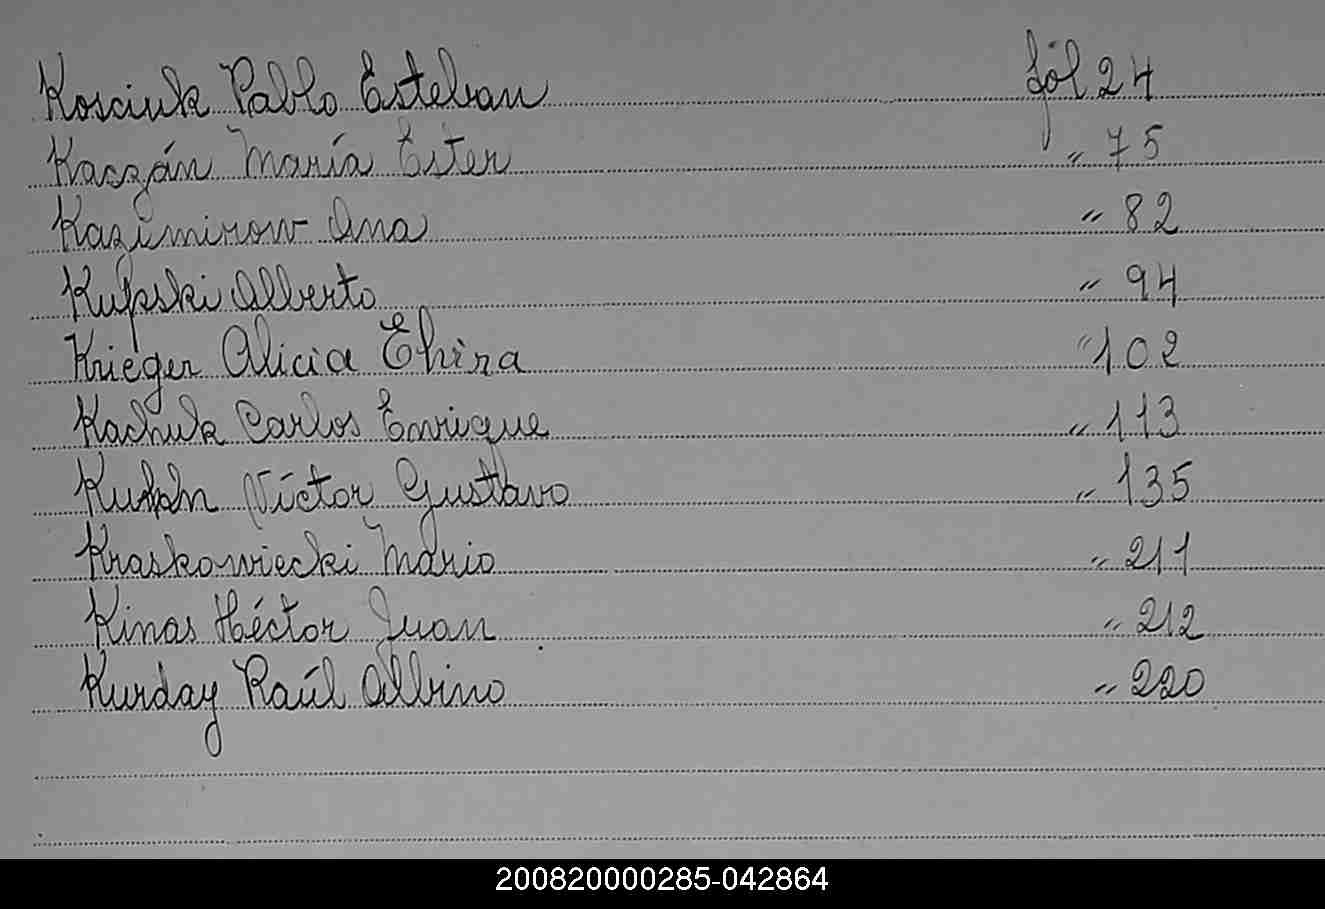 Kosciuk Pablo Esteban fól 24
Kaczán María Ester " 75
Kazimirow Ana " 82
Kupski Alberto " 94
Krieger Alicia " 102
Kachuk Carlos Enrique " 113
Víctor Gustavo " 135
Kraskowiecki Mario " 211
Kinas Héctor Juan " 212
Kurday Raúl Albino " 220
200820000285-042864